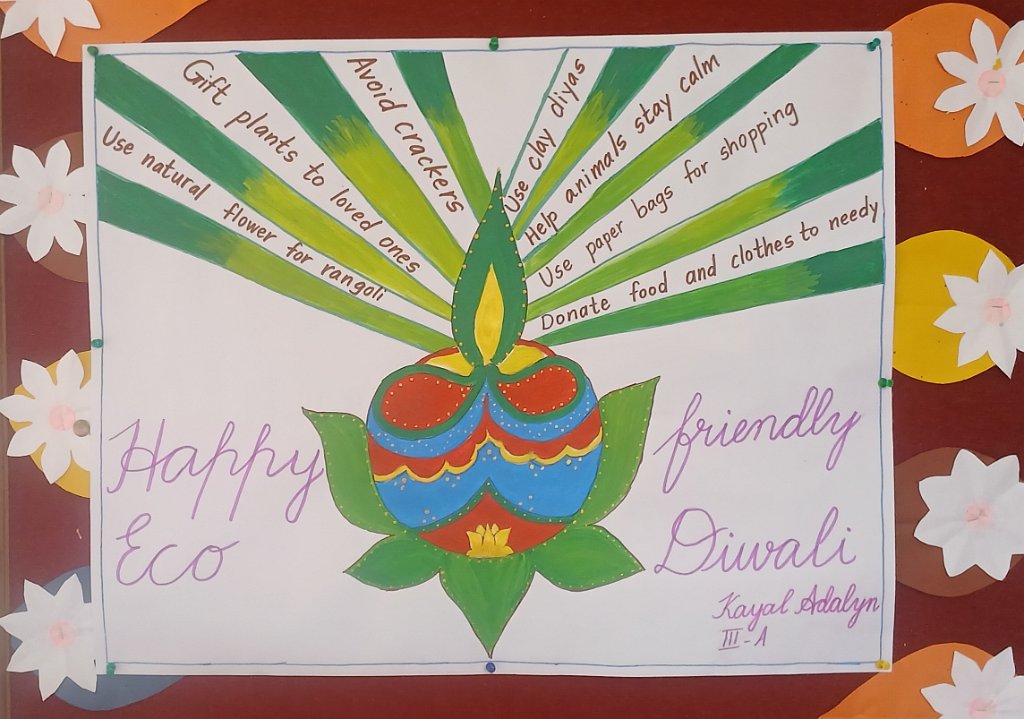 Use natural flower for rangoli
Gift plants to loved ones
Avoid crackers
Use clay diyas
Help animals stay calm
Use paper bags for shopping
Donate food and clothes to needy
Happy friendly
Eco Diwali
Kayal Adalyn
III-A